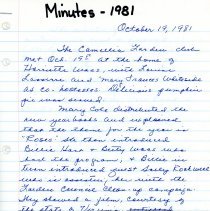 Minutes - 1981
October 19, 1981
The Camellia Garden Club
met Oct. 15th at the home of
Harriette Wood, with Louise
and Mary Frances Whiteside
as co-hostesses. Delicious pumpkin
pie was served.
Mary Cole distributed the
new yearbooks and explained
that the theme for the year is
"Roses". She then introduced
Billie Dean & Betty Wood who
had the program, & Billie in
turn introduced guest
who is
Garden Council Clean-up campaign.
They showed a film, courtesy of
the State of